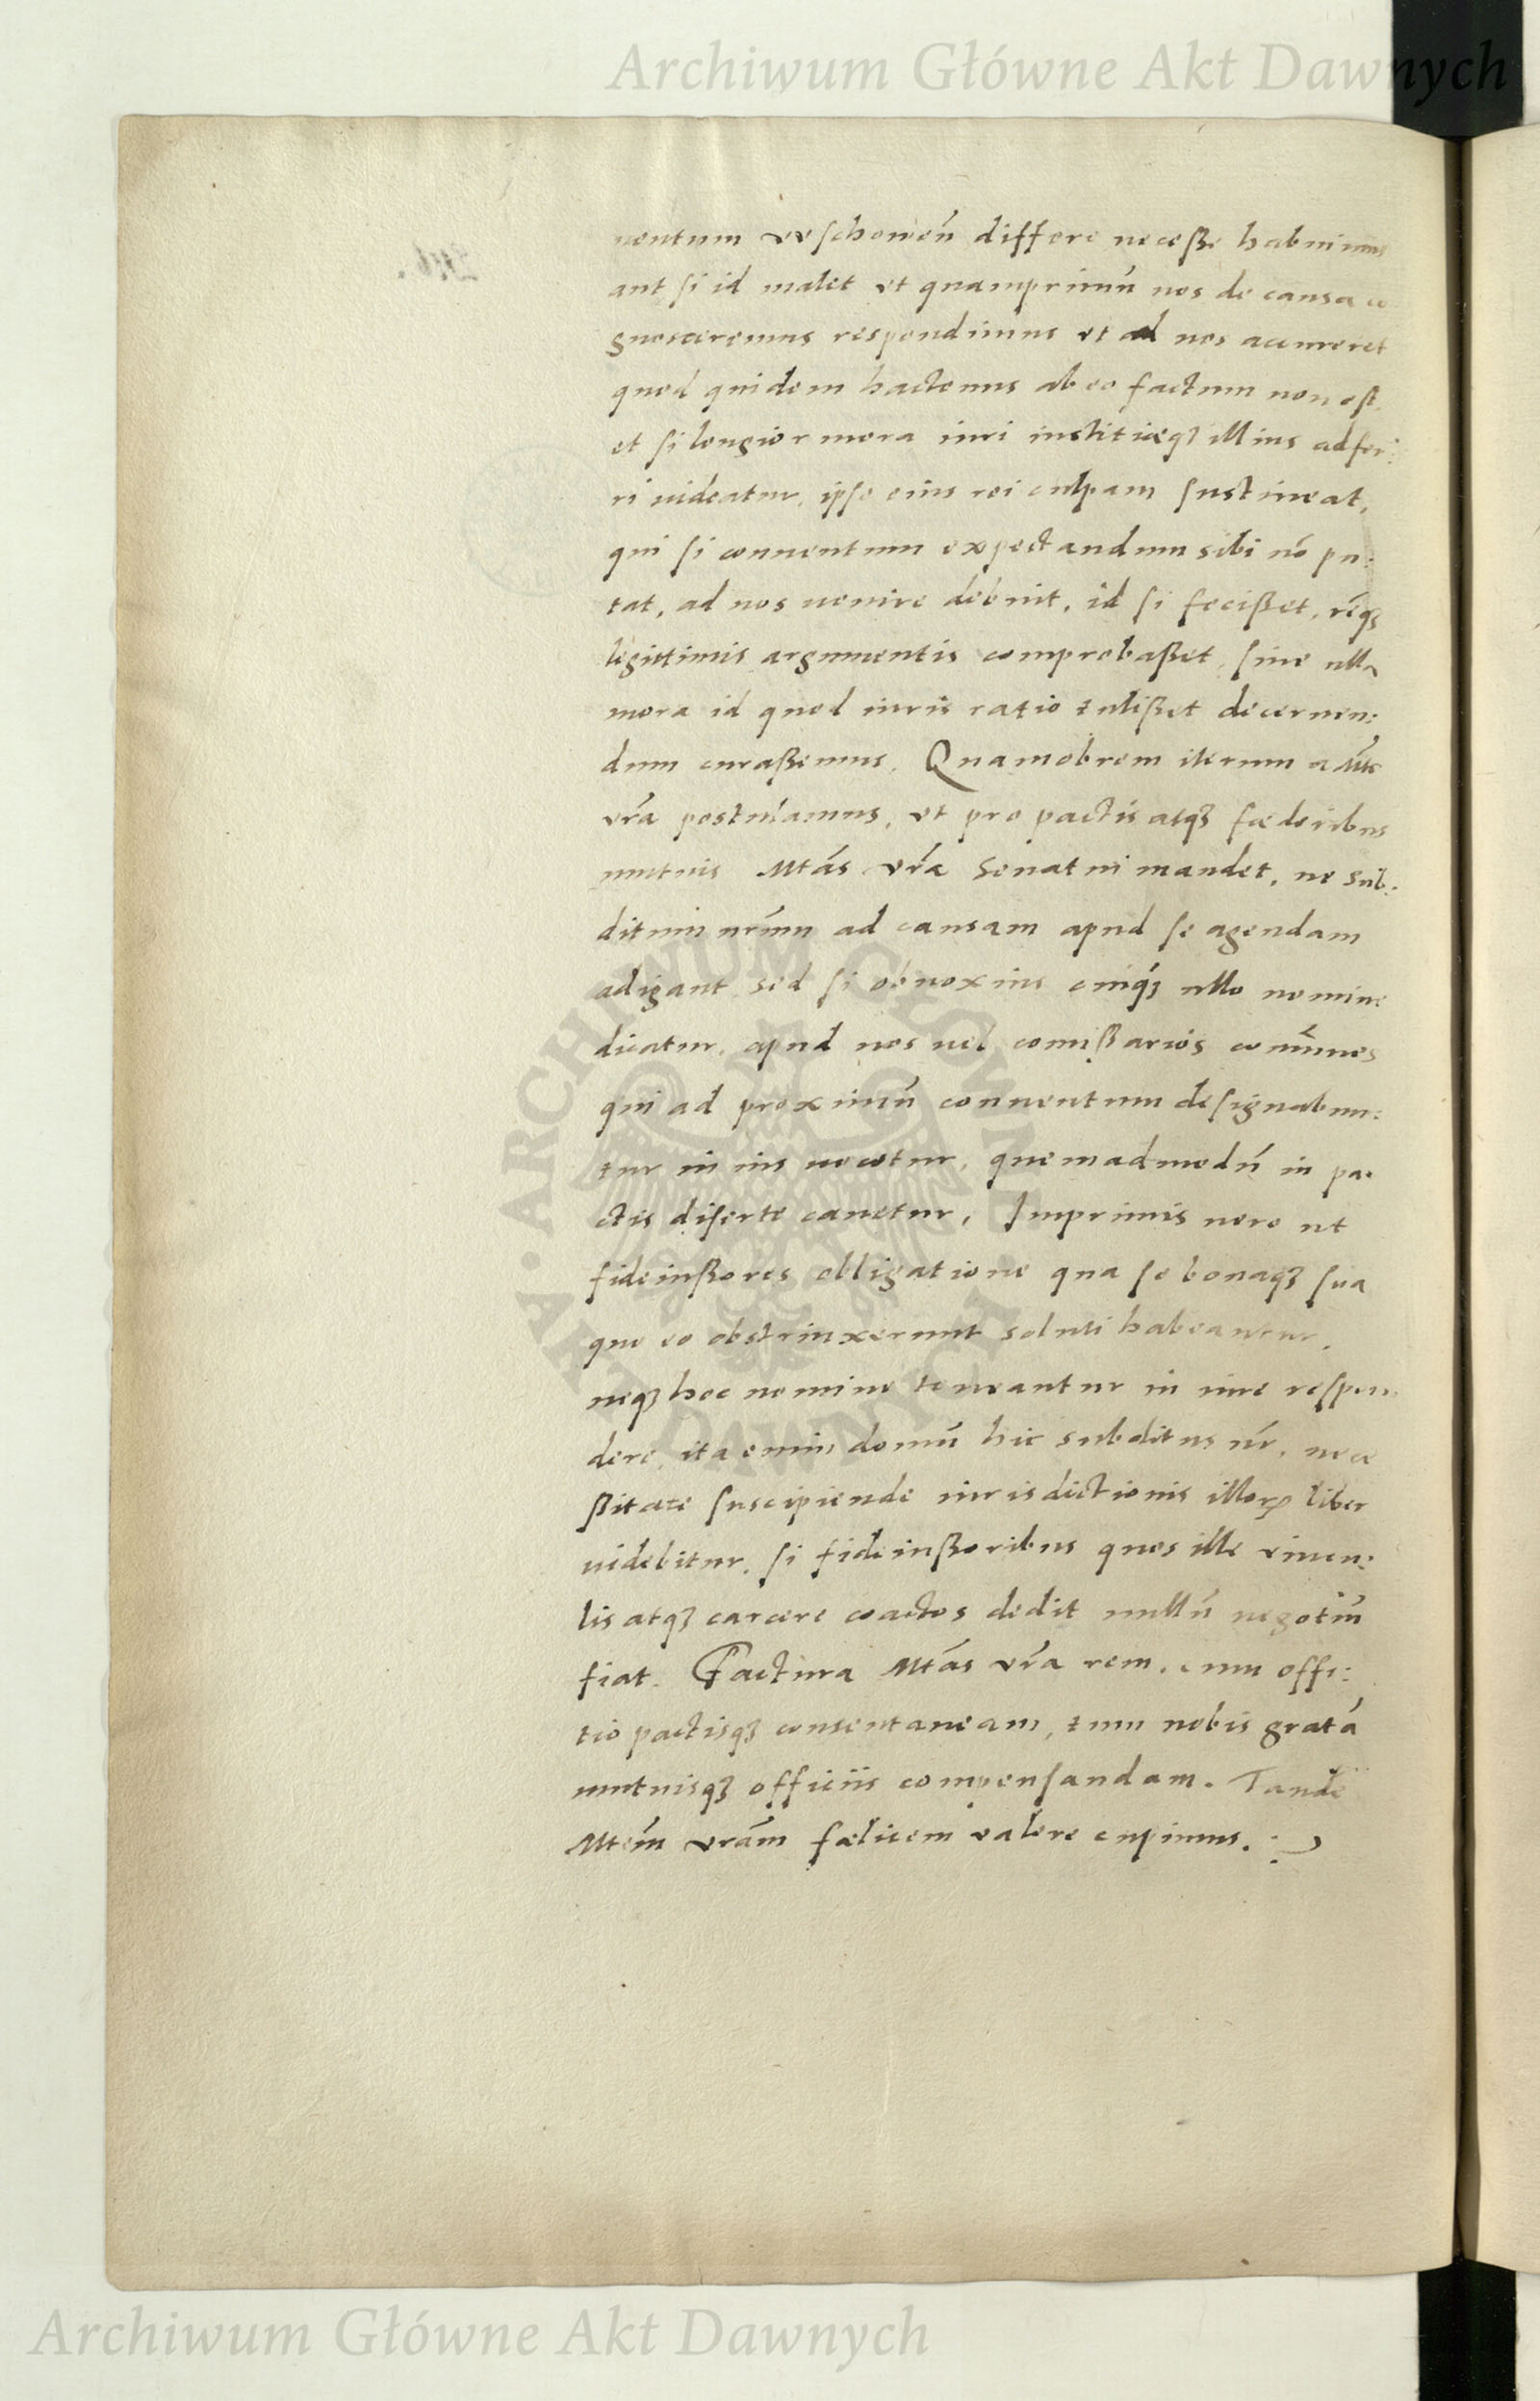 Archiwum Główne Akt Dawnych
uentum vvschouen̄ differe necesse habuimus
aut si id malet et quamprimū nos de causa co
gnosceremus respondimus vt ad nos accurreret
quod quidem hactenus ab eo factum non est.
et si longior mora iuri iustitiæqꝫ illius adfer:
ri uideatur, ipse eius rei culpam sustineat,
qui si conuentum expectandum sibi nō pu:
tat, ad nos uenire debuit, id si fecisset, reqꝫ
legittimis argumentis comprobasset, sine ulla
mora id quod iuris ratio tulisset decernen:
dum curassemus. Quamobrem iterum a Mte
vrā postulamus, vt pro pactis atqꝫ fœderibus
mutuis Mtās vrā Senatui mandet, ne sub:
ditum nrm̄ ad causam apud se agendam
adigant sed si obnoxius cuiqꝫ ullo nomine
dicatur, apud nos uel comissarios com̄unes
qui ad proximū conuentum designabun:
tur in ius uocetur, quemadmodū in pa:
ctis diserte cauetur, Imprimis uero ut
fideiussores obligatione qua se bonaqꝫ sua
quo eo obstrinxerunt soluti habeantur,
neqꝫ hoc nomine teneantur in iure respon
dere, ita enim domū hic subditus nr̄, nece
ssitate suscipiende iurisdictionis illorꝝ liber
uidebitur, si fideiussoribus quos ille vincu:
lis atqꝫ carcere coactos dedit nullū negotiū
fiat. Factura Mtās vrā rem, cum offi:
tio pactisqꝫ consentaneam, tum nobis gratā
mutuisqꝫ officiis compensandam. Tandē
Mtem̄ vrām fœlicem valere cupimus.
ARCHIWUM GŁÓWNE · AKT DAWNYCH ·
Archiwum Główne Akt Dawnych